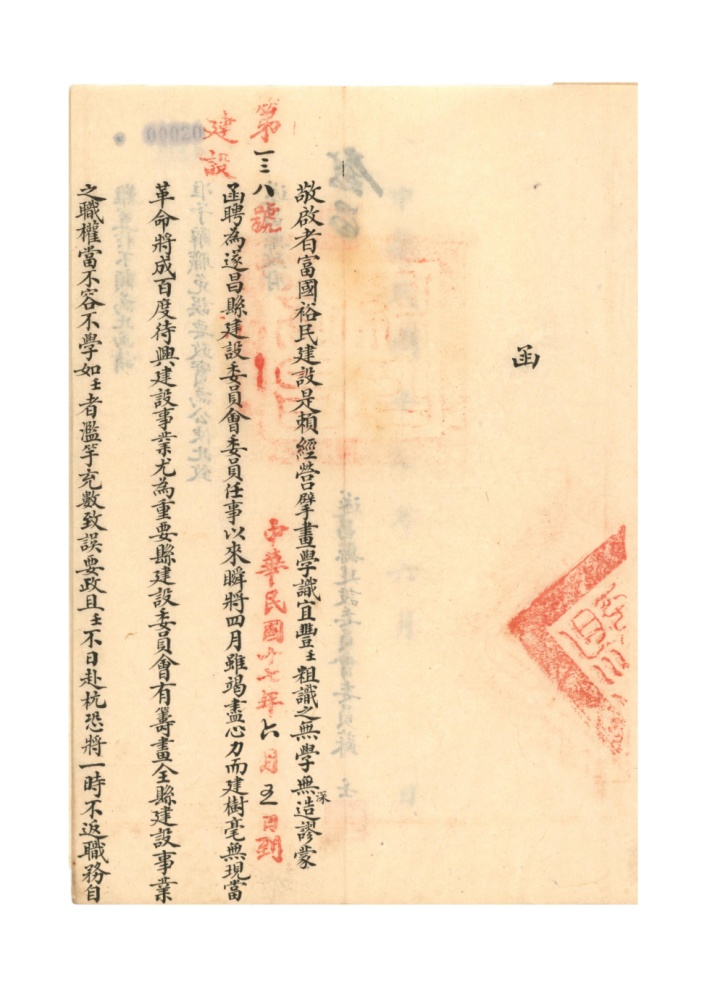 函
敬啟者富國裕民建設是賴經營擘畫學識宜豐壬粗識之無學無深造謬蒙
中華民國十七年六月五日到
第一三八號
函聘為遂昌縣建設委員會委員任事以來瞬將四月雖竭盡心力而建樹毫無現當
建設
革命將成百度待興建設事業尤為重要縣建設委員會有籌畫全縣建設事業
00020
之職權當不容不學如壬者濫竽充數致誤要政且壬不日赴杭恐將一時不返職務自